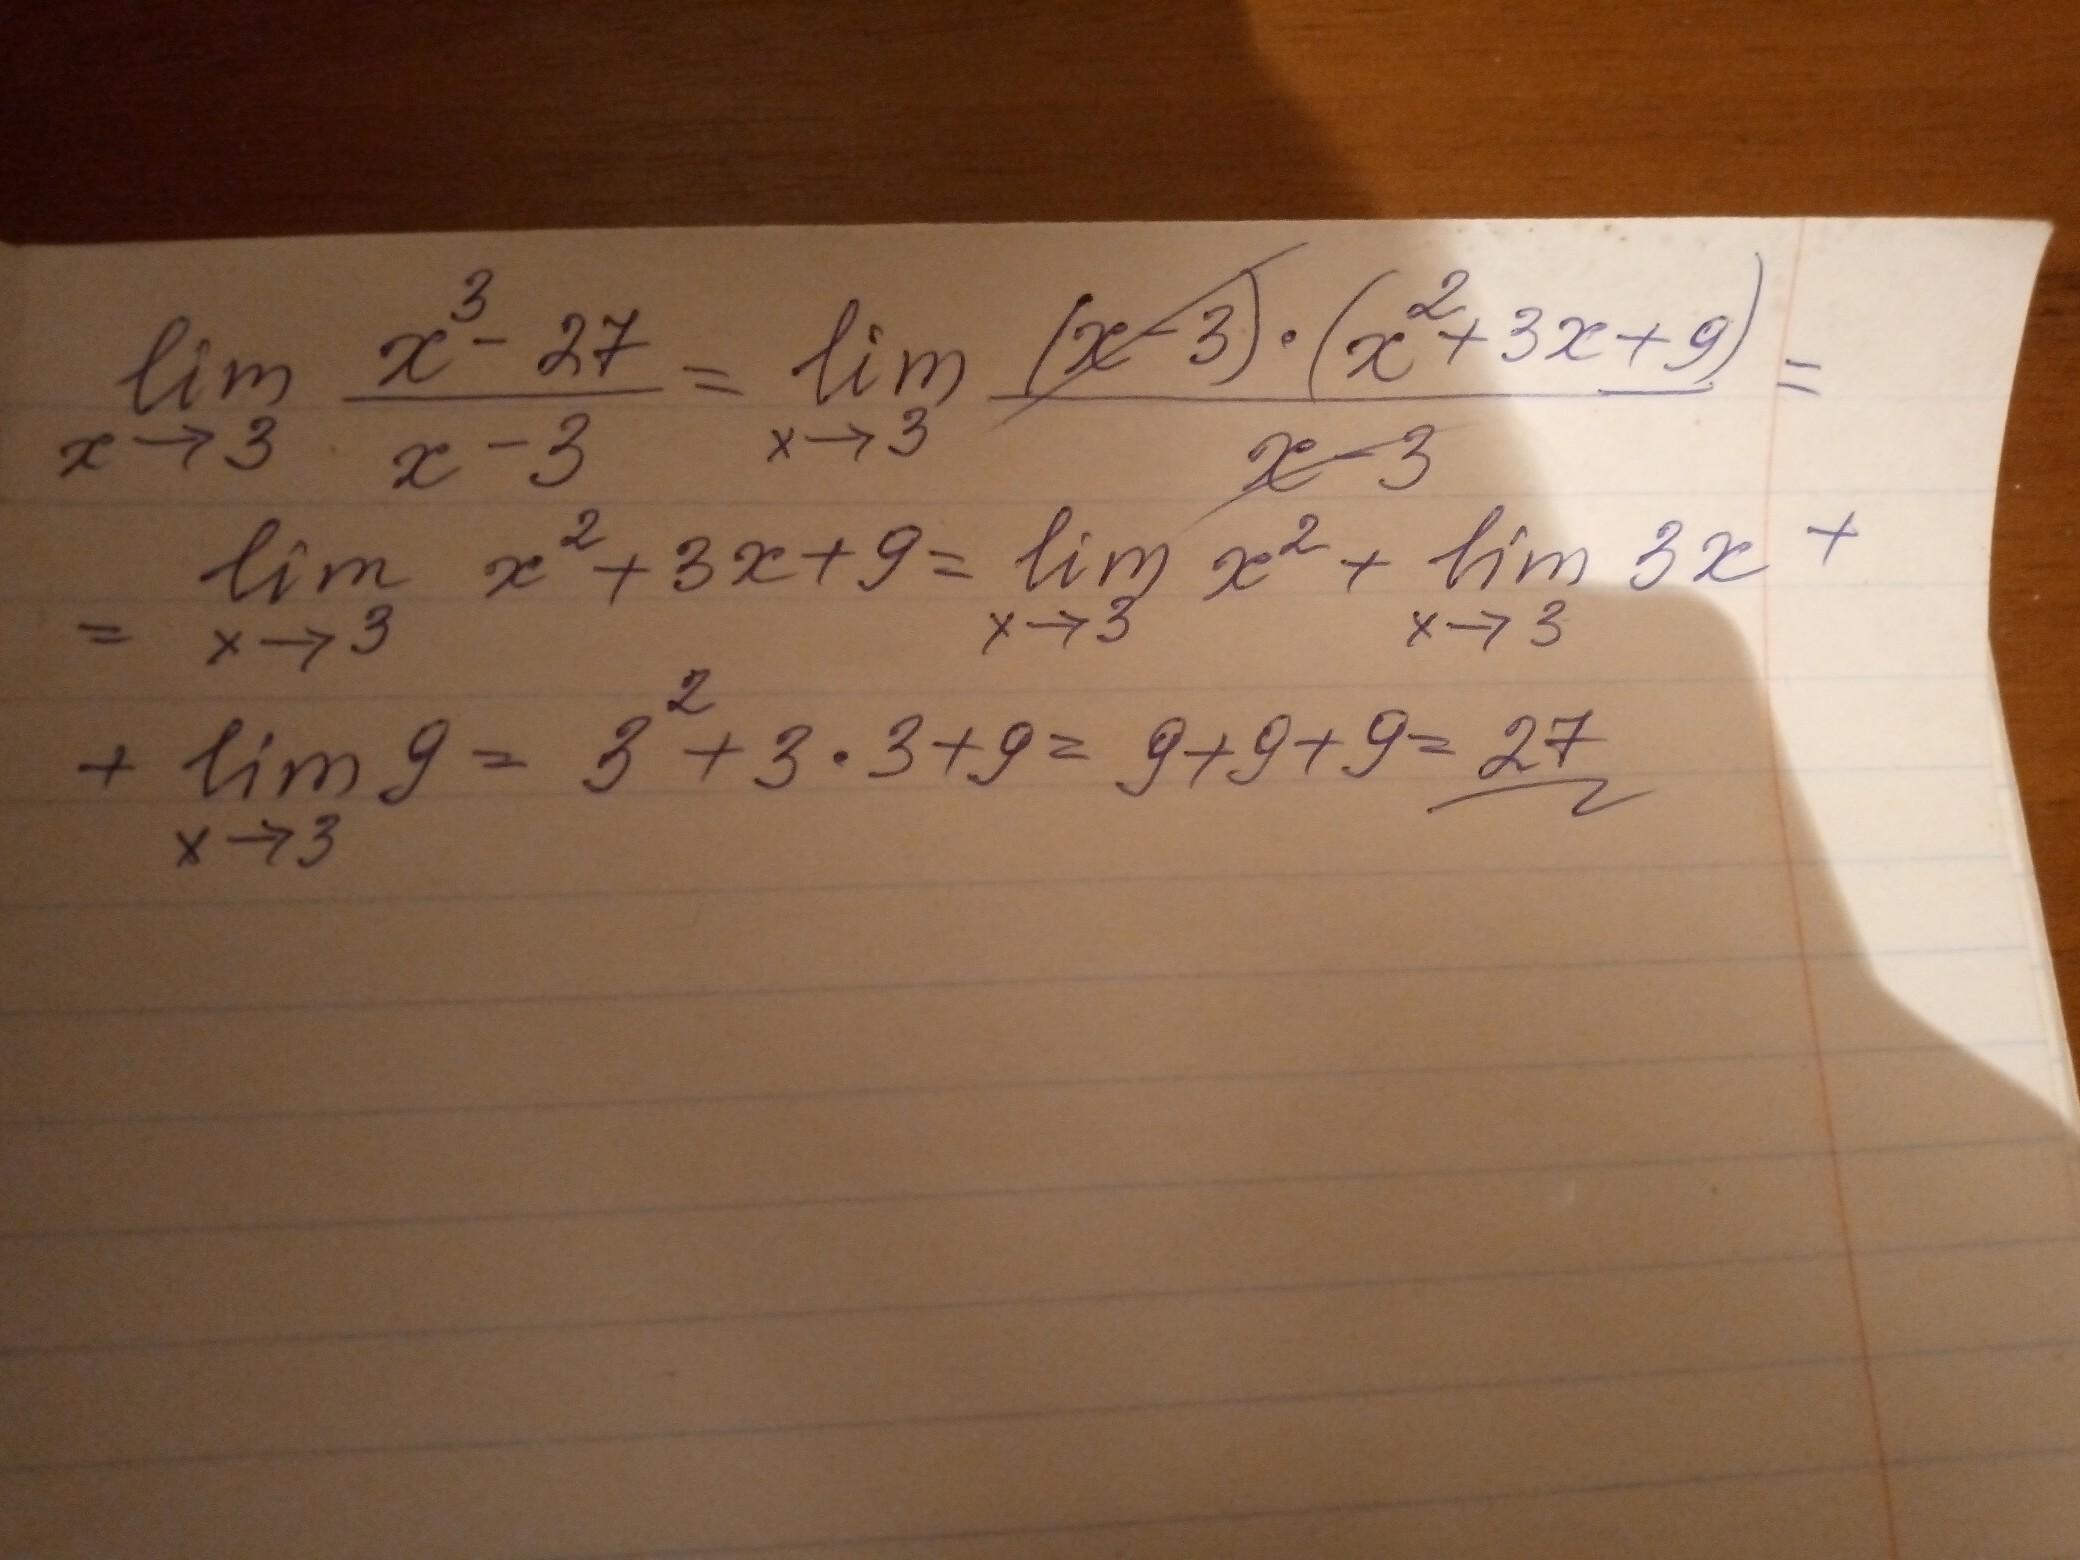 lim x→3 (x³ - 27)/(x - 3) = lim x→3 ((x - 3)·(x² + 3x + 9))/(x - 3) =
= lim x→3 x² + 3x + 9 = lim x→3 x² + lim x→3 3x +
+ lim x→3 9 = 3² + 3·3 + 9 = 9 + 9 + 9 = 27